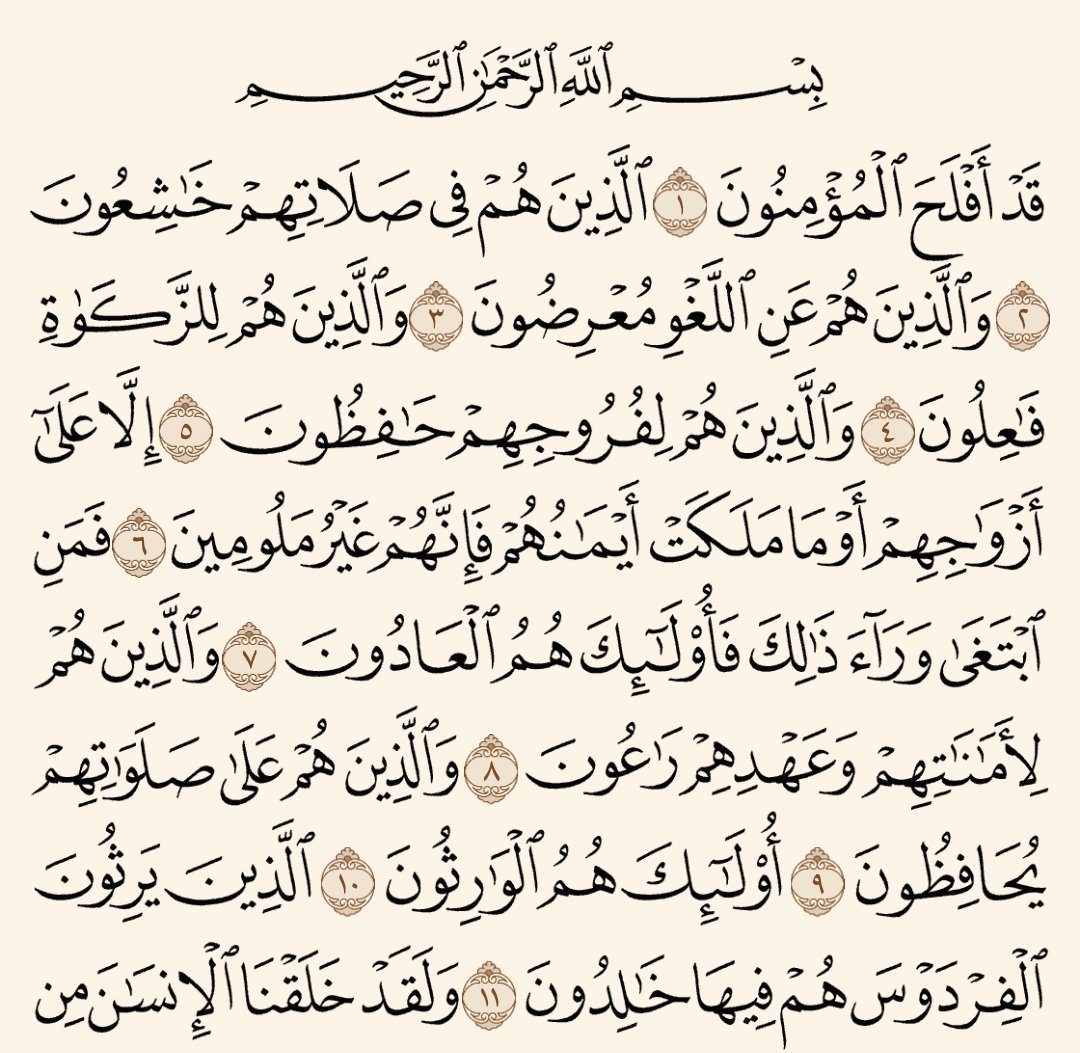 بِسْمِ ٱللَّهِ ٱلرَّحْمَٰنِ ٱلرَّحِيمِ
قَدْ أَفْلَحَ ٱلْمُؤْمِنُونَ ١ ٱلَّذِينَ هُمْ فِى صَلَاتِهِمْ خَٰشِعُونَ
٢ وَٱلَّذِينَ هُمْ عَنِ ٱللَّغْوِ مُعْرِضُونَ ٣ وَٱلَّذِينَ هُمْ لِلزَّكَوٰةِ
فَٰعِلُونَ ٤ وَٱلَّذِينَ هُمْ لِفُرُوجِهِمْ حَٰفِظُونَ ٥ إِلَّا عَلَىٰٓ
أَزْوَٰجِهِمْ أَوْ مَا مَلَكَتْ أَيْمَٰنُهُمْ فَإِنَّهُمْ غَيْرُ مَلُومِينَ ٦ فَمَنِ
ٱبْتَغَىٰ وَرَآءَ ذَٰلِكَ فَأُو۟لَٰٓئِكَ هُمُ ٱلْعَادُونَ ٧ وَٱلَّذِينَ هُمْ
لِأَمَٰنَٰتِهِمْ وَعَهْدِهِمْ رَٰعُونَ ٨ وَٱلَّذِينَ هُمْ عَلَىٰ صَلَوَٰتِهِمْ
يُحَافِظُونَ ٩ أُو۟لَٰٓئِكَ هُمُ ٱلْوَٰرِثُونَ ١٠ ٱلَّذِينَ يَرِثُونَ
ٱلْفِرْدَوْسَ هُمْ فِيهَا خَٰلِدُونَ ١١ وَلَقَدْ خَلَقْنَا ٱلْإِنسَٰنَ مِن